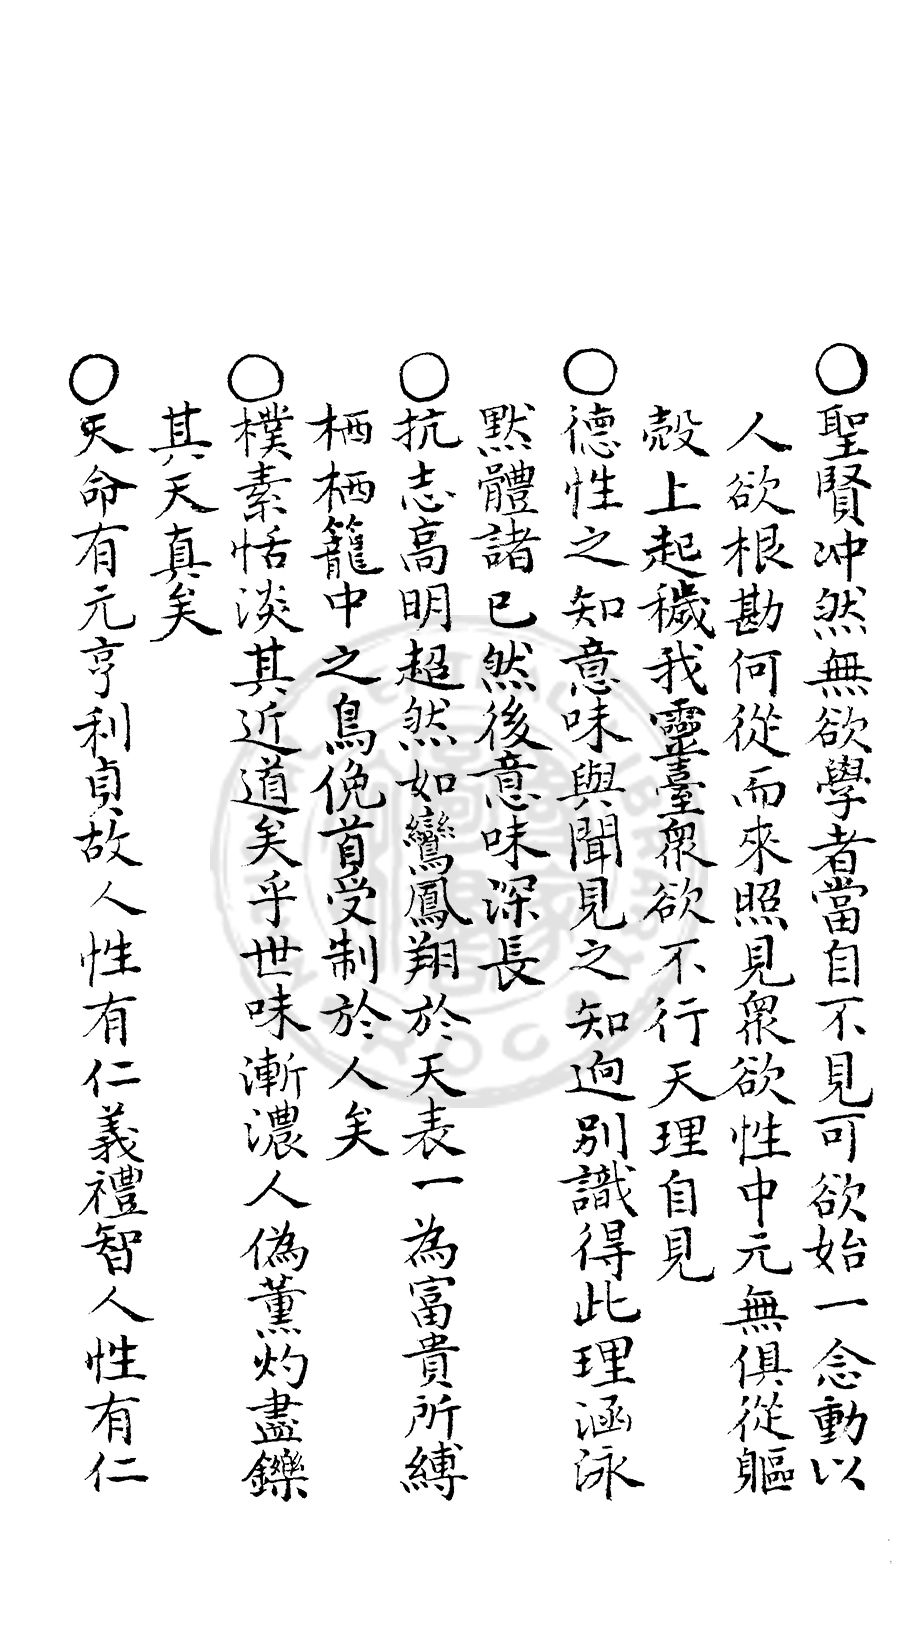 ○聖賢冲然無欲學者當自不見可欲始一念動以
人欲根勘何從而來照見衆欲性中元無俱從軀
殼上起穢我靈臺衆欲不行天理自見
○德性之知意味與聞見之知逈別識得此理涵泳
默體諸已然後意味深長
○抗志高明超然如鸞鳳翔於天表一為富貴所縛
栖栖籠中之鳥俛首受制於人矣
○樸素恬淡其近道矣乎世味漸濃人偽薰灼盡鑠
其天真矣
○天命有元亨利貞故人性有仁義禮智人性有仁